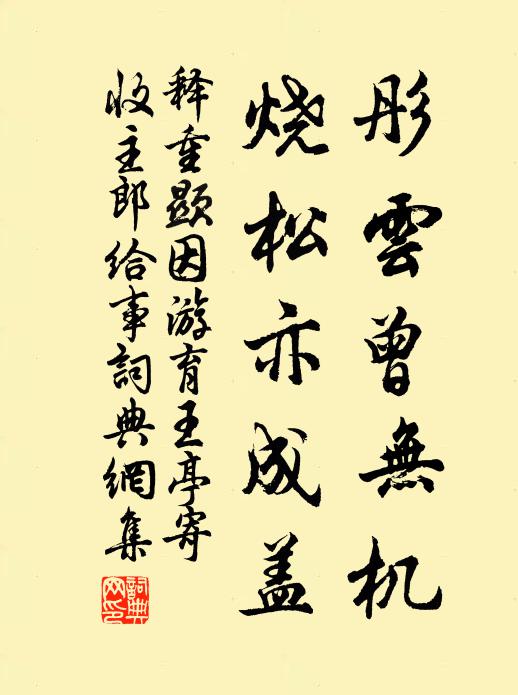 彤雲曾無机
烧松亦成盖
释重顯因游育王亭寄
收主郎给事詞典網集
詞典網印